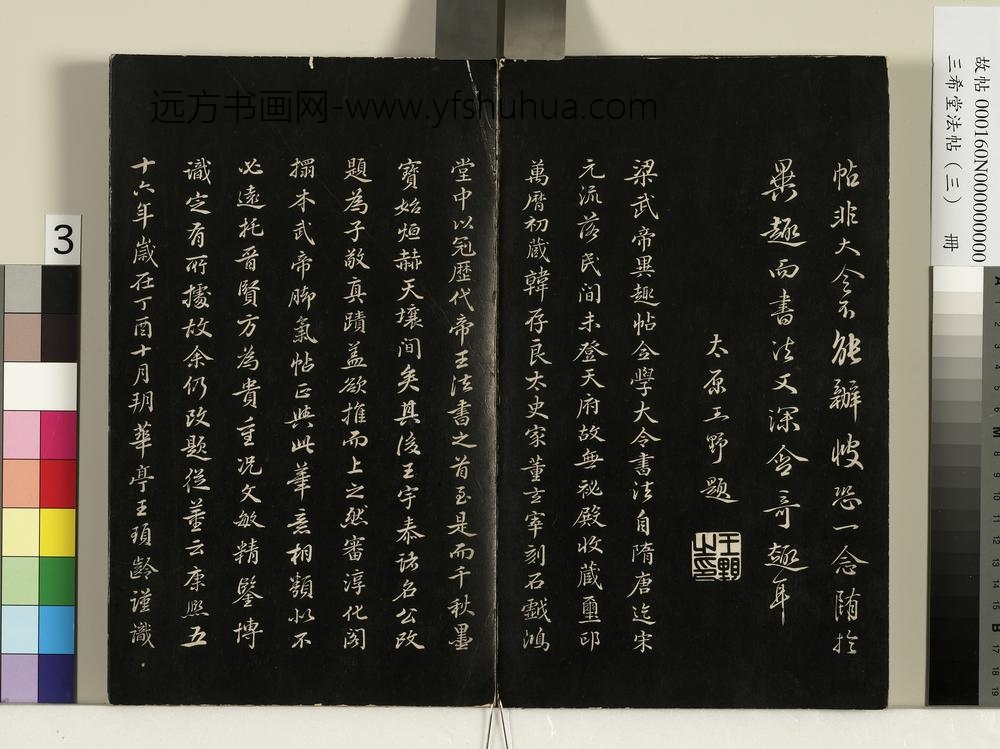 帖非大令不能辦峻恐一念隨於
異趣而書法又深含奇趣耳
太原王野題
王野之印
梁武帝異趣帖全學大令書法自隋唐迄宋
元流落民間未登天府故無祕殿收藏璽印
萬曆初藏韓存良太史家董玄宰刻石戲鴻
堂中以冠歷代帝王法書之首至是而千秋墨
寶始烜赫天壤間矣其後王宇泰諸名公改
題為子敬真蹟蓋欲推而上之然審淳化閣
搨本武帝腳氣帖正與此筆意相類似不
必遠托晉賢方為貴重況文敏精鑒博
識定有所據故余仍改題從董云康熙五
十六年歲在丁酉十月朔華亭王頊齡謹識
远方书画网-www.yfshuhua.com
故帖 000160N000000000
三希堂法帖（三） 冊
3